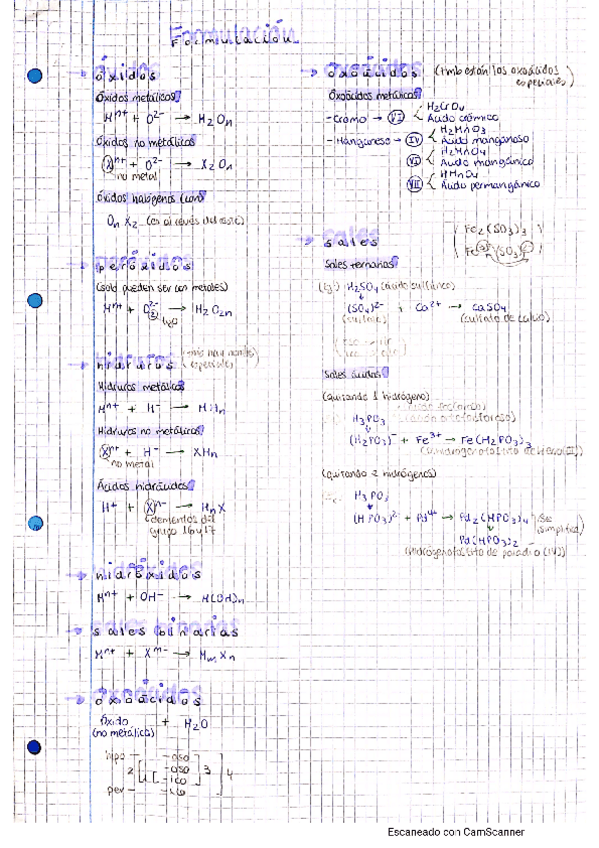 Formulación
→ óxidos
Óxidos metálicos
Mⁿ⁺ + O²⁻ → M₂Oₙ
Óxidos no metálicos
Xⁿ⁺ + O²⁻ → X₂Oₙ
no metal
Óxidos halógenos
OₙX₂ (es al revés del resto)
→ peróxidos
(solo pueden ser con metales)
Mⁿ⁺ + O₂²⁻ → M₂O₂ₙ
→ hidruros
Hidruros metálicos
Mⁿ⁺ + H⁻ → MHₙ
Hidruros no metálicos
Xⁿ⁺ + H⁻ → XHₙ
no metal
Ácidos hidrácidos
H⁺ + Xⁿ⁻ → HₙX
elementos del
grupo 16 y 17
→ hidróxidos
Mⁿ⁺ + OH⁻ → M(OH)ₙ
→ sales binarias
Mⁿ⁺ + Xᵐ⁻ → MₘXₙ
→ oxoácidos
Óxido + H₂O
(no metálico)
hipo – -oso
2 -oso 3 4
1 -ico
per – -ico
→ oxoácidos (tmb están los oxoácidos
especiales)
Oxoácidos metálicos
- Cromo → VI H₂CrO₄
Ácido crómico
- Manganeso → IV H₂MnO₃
Ácido manganoso
VI H₂MnO₄
Ácido mangánico
VII HMnO₄
Ácido permangánico
→ sales
Fe₂(SO₃)₃
Sales ternarias
H₂SO₄ (ácido sulfúrico)
(SO₄)²⁻ + Ca²⁺ → CaSO₄
(sulfato) (sulfato de calcio)
Sales ácidas
(quitando 1 hidrógeno)
H₃PO₃
(H₂PO₃)⁻ + Fe³⁺ → Fe(H₂PO₃)₃
(quitando 2 hidrógenos)
H₃PO₃
(HPO₃)²⁻ + Pd⁴⁺ → Pd₂(HPO₃)₄ (se
simplifica)
Pd(HPO₃)₂
(hidrogenofosfito de paladio (IV))
Escaneado con CamScanner